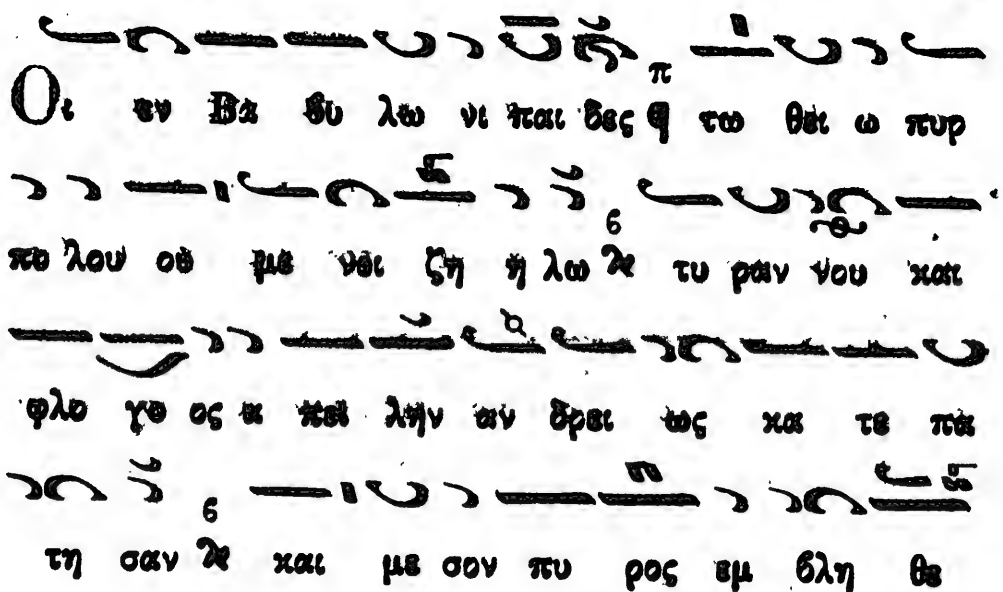 Οι εν Βα βυ λω νι παι δες π τω θει ω πυρ
πο λου ου με νοι ζη η λω ϐ τυ ραν νου και
φλο γο ος α πει λην αν δρει ως κα τε πα
τη σαν ϐ και με σον πυ ρος εμ βλη θε